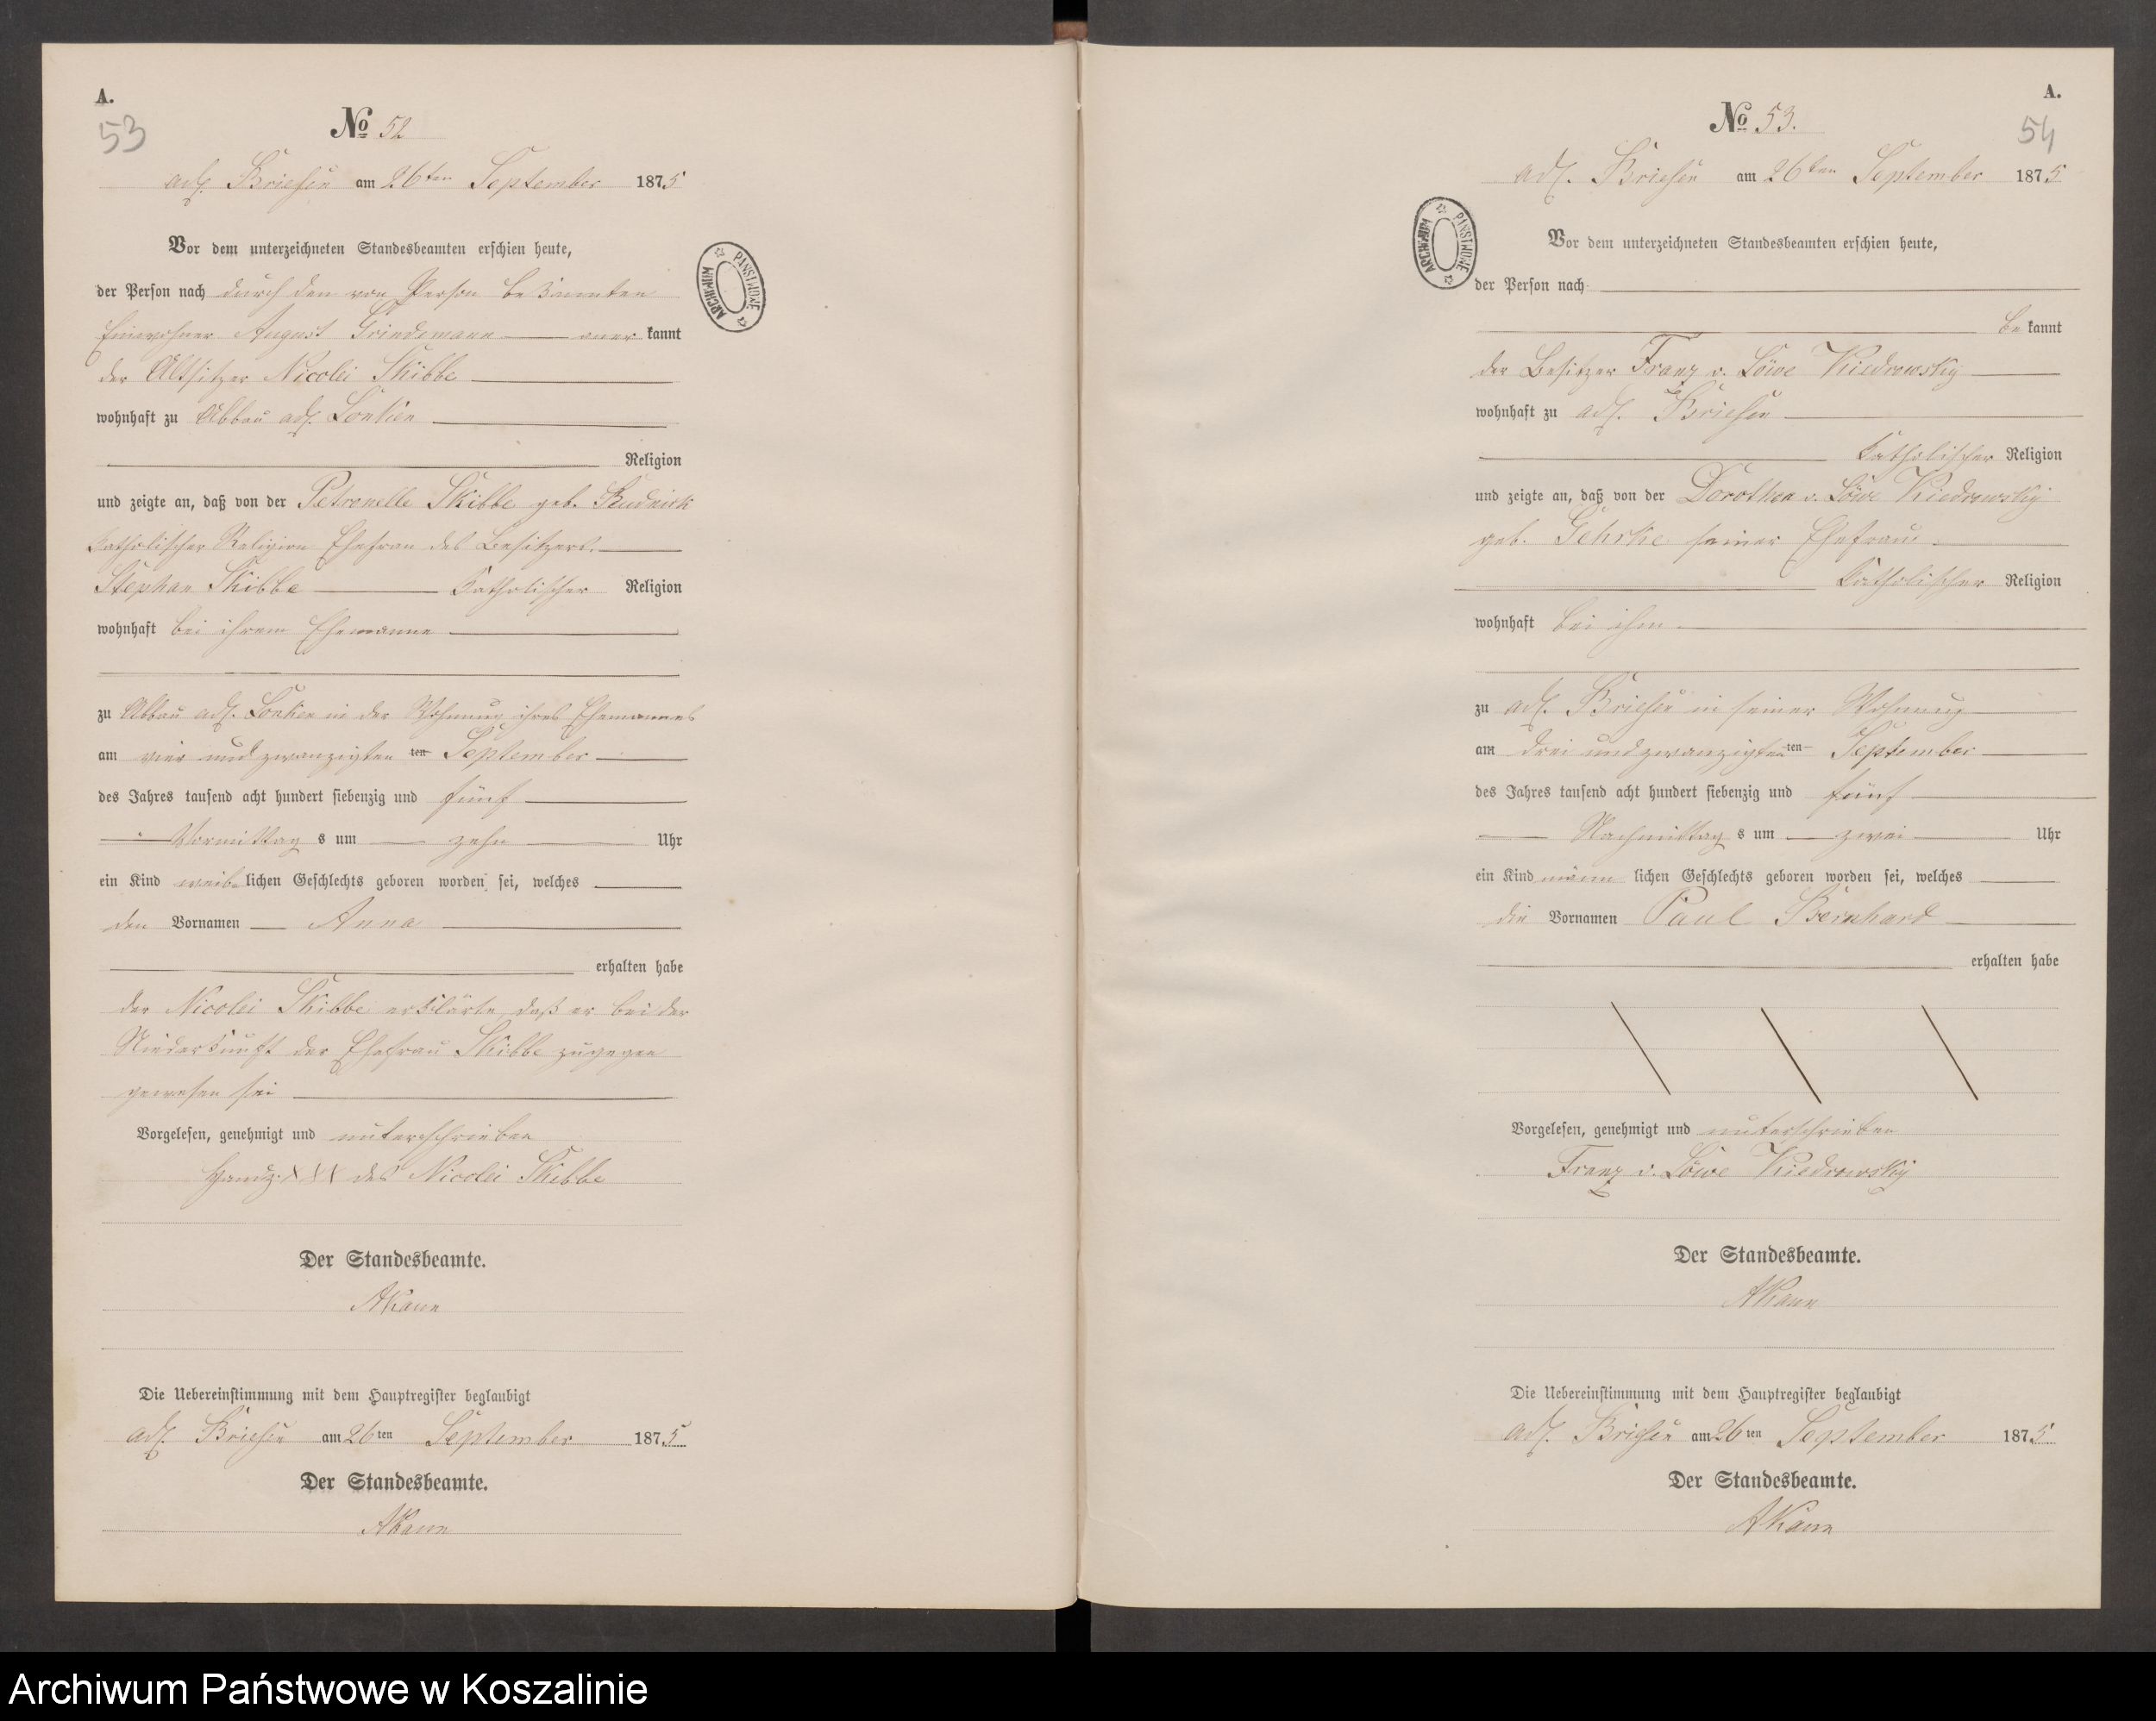 A.
53
No 52
adl. Briesen am 26ten September 1875
Vor dem unterzeichneten Standesbeamten erschien heute,
der Person nach durch den von Person bekannten
Einwohner August Griesemann aner kannt
der Altsitzer Nicolei Skibbe
wohnhaft zu Abbau adl. Lonken
Religion
und zeigte an, daß von der Petronelle Skibbe geb. Rudnick
katholischer Religion Ehefrau des Besitzers
Stephan Skibbe katholischer Religion
wohnhaft bei ihrem Ehemanne
zu Abbau adl. Lonken in der Wohnung ihres Ehemannes
am vier und zwanzigsten ten September
des Jahres tausend acht hundert siebenzig und fünf
Vormittag s um zehn Uhr
ein Kind weib lichen Geschlechts geboren worden sei, welches
den Vornamen Anna
erhalten habe
der Nicolei Skibbe erklärte, daß er bei der
Niederkunft der Ehefrau Skibbe zugegen
gewesen sei
Vorgelesen, genehmigt und unterschrieben
Handz. XXX des Nicolei Skibbe
Der Standesbeamte.
AKann
Die Uebereinstimmung mit dem Hauptregister beglaubigt
adl. Briesen am 26ten September 1875
Der Standesbeamte.
AKann
ARCHIWUM PAŃSTWOWE
A.
54
No 53.
adl. Briesen am 26ten September 1875
Vor dem unterzeichneten Standesbeamten erschien heute,
der Person nach
be kannt
der Besitzer Franz v. Löwe Kiedrowsky
wohnhaft zu adl. Briesen
katholischer Religion
und zeigte an, daß von der Dorothea v. Löwe Kiedrowsky
geb. Gehrke seiner Ehefrau
katholischer Religion
wohnhaft bei ihm
zu adl. Briesen in seiner Wohnung
am drei und zwanzigsten ten September
des Jahres tausend acht hundert siebenzig und fünf
Nachmittag s um zwei Uhr
ein Kind männ lichen Geschlechts geboren worden sei, welches
die Vornamen Paul Bernhard
erhalten habe
Vorgelesen, genehmigt und unterschrieben
Franz v. Löwe Kiedrowsky
Der Standesbeamte.
AKann
Die Uebereinstimmung mit dem Hauptregister beglaubigt
adl. Briesen am 26ten September 1875
Der Standesbeamte.
AKann
ARCHIWUM PAŃSTWOWE
Archiwum Państwowe w Koszalinie